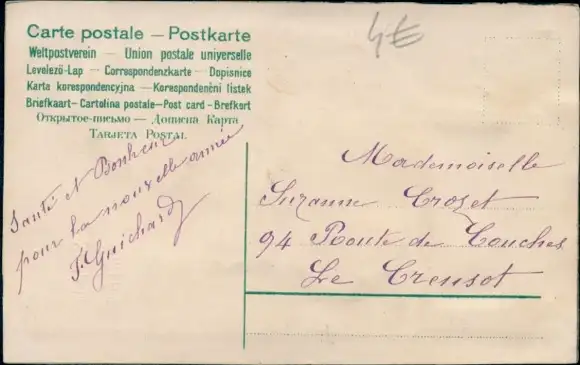 Carte postale – Postkarte
Weltpostverein – Union postale universelle
Levelező-Lap – Correspondenzkarte – Dopisnice
Karta korespondencyjna – Korespondenční lístek
Briefkaart – Cartolina postale – Post card – Brefkort
Открытое-письмо – Дописна Карта
Tarjeta Postal
4€
Santé et Bonheur
pour la nouvelle année
F. Guichard
Mademoiselle
Suzanne Crozet
94 Route de Couches
Le Creusot